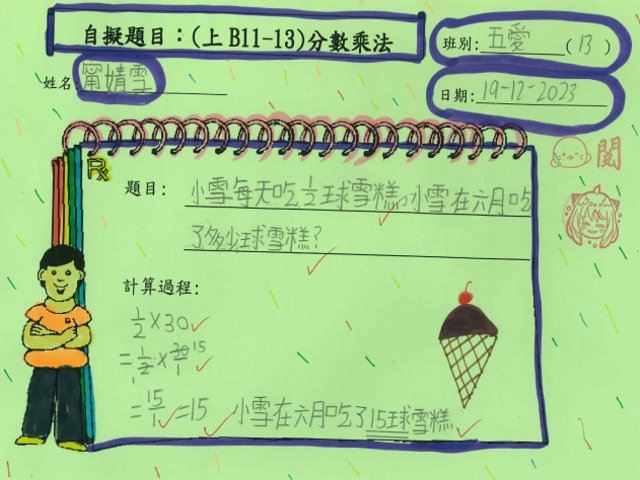 自擬題目：(上B11-13)分數乘法
班別：五愛(13)
姓名：甯婧雪
日期：19-12-2023
閱
題目：小雪每天吃1/2球雪糕。小雪在六月吃
了多少球雪糕？
計算過程：
1/2×30
=1/2×30/1 15
1
=15/1=15 小雪在六月吃了15球雪糕